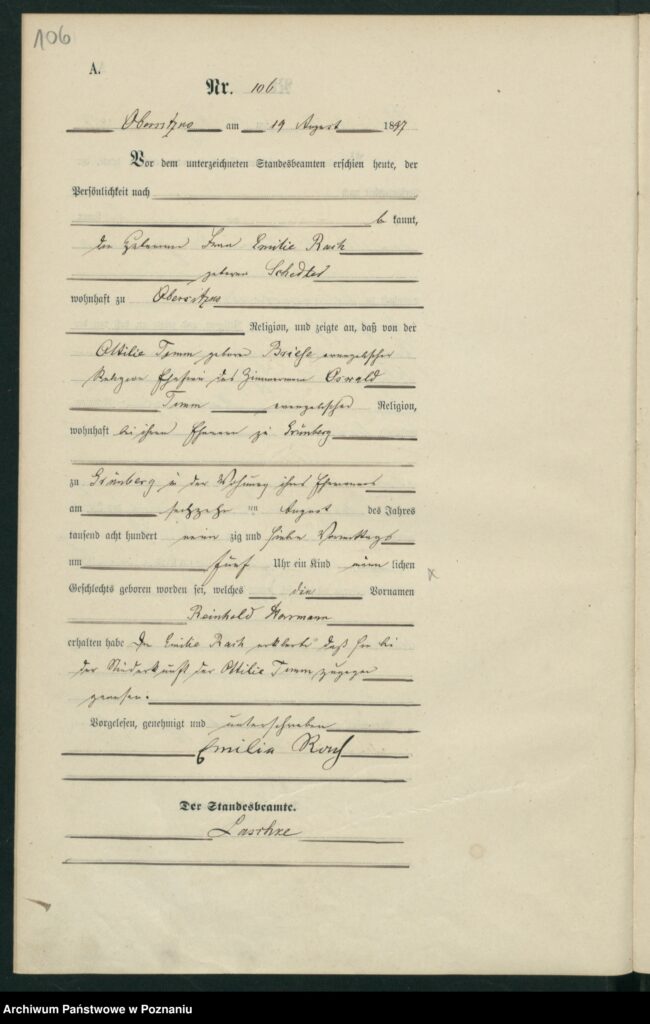 106
A.
Nr. 106
Obersitzko am 19 August 1897
Vor dem unterzeichneten Standesbeamten erschien heute, der
Persönlichkeit nach
b kannt,
die Hebamme Frau Emilie Rach
geborene
wohnhaft zu Obersitzko
Religion, und zeigte an, daß von der
Ottilie Timm geborene Briese evangelischer
Religion Ehefrau des Zimmermann Oswald
Timm evangelischer Religion,
wohnhaft bei ihrem Ehemann zu Grünberg
zu Grünberg in der Wohnung ihres Ehemannes
am sechzehn ten August des Jahres
tausend acht hundert neun zig und sieben Vormittags
um fünf Uhr ein Kind männ lichen
Geschlechts geboren worden sei, welches die Vornamen
Reinhold Hermann
erhalten habe Die Emilie Rach erklärte daß sie bei
der Niederkunft der Ottilie Timm zugegen
gewesen.
Vorgelesen, genehmigt und unterschrieben
Emilie Rach
Der Standesbeamte.
Laschke
Archiwum Państwowe w Poznaniu